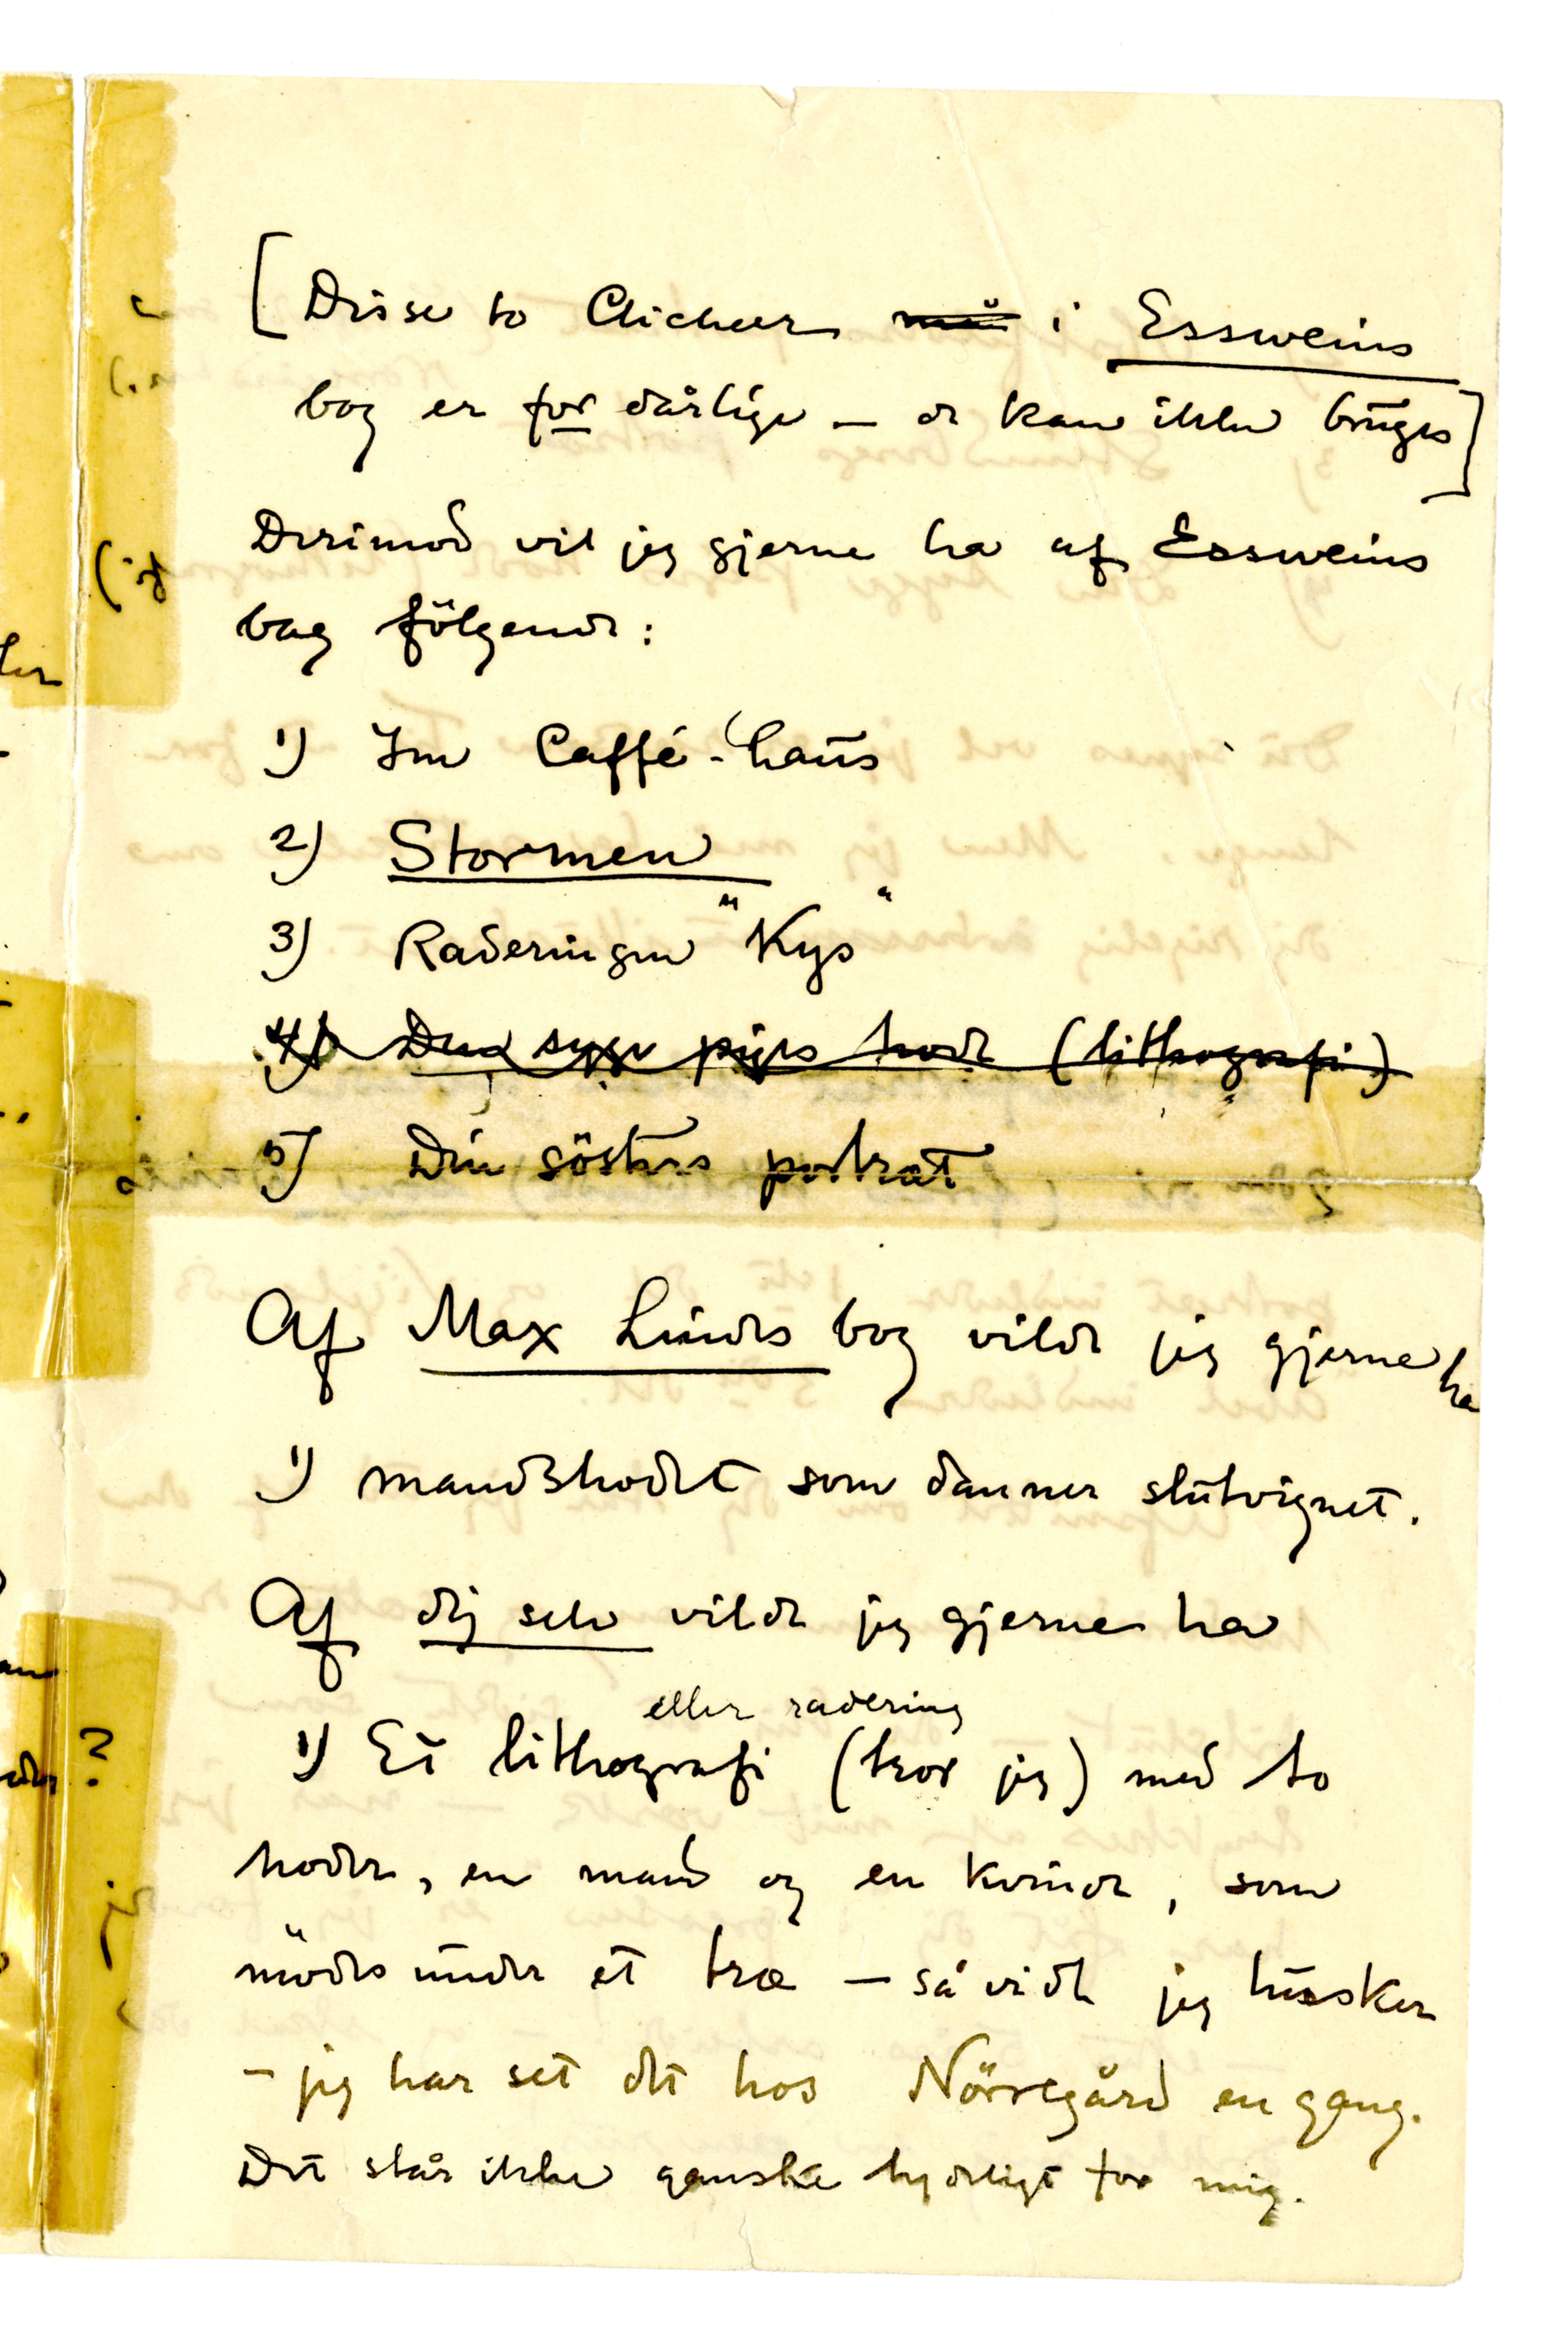 [Disse to Clicheer må i Essweins
bog er for dårlige – de kan ikke bruges]
Derimod vil jeg gjerne ha af Essweins
bog følgende:
1) Im Caffé-haus
2) Stormen
3) Raderingen "Kys"
4) Den syge piges hode (lithografi)
5) Din søsters portræt
Af Max Lindes bog vilde jeg gjerne ha
1) mandshodet som danner slutvignet.
Af dig selv vilde jeg gjerne ha
eller radering
1) Et lithografi (tror jeg) med to
hoder, en mand og en kvinde, som
mødes under et træ – såvidt jeg husker
– jeg har set det hos Nørregård en gang.
Det står ikke ganske tydeligt for mig.